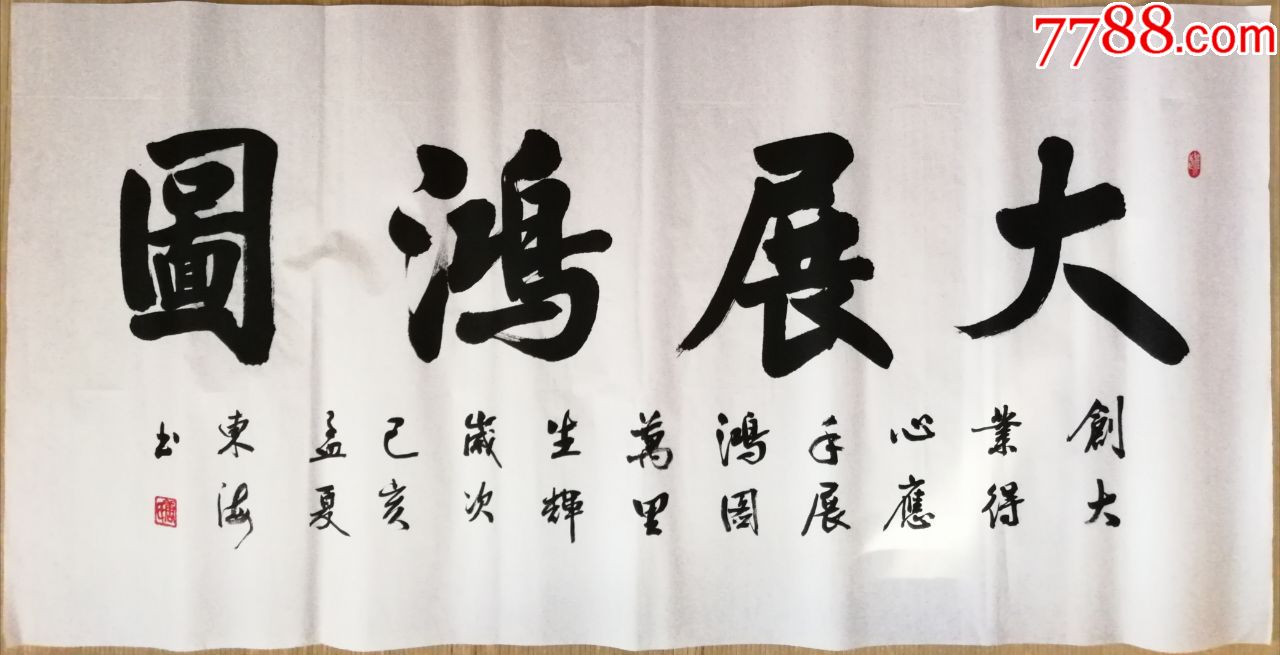 大展鴻圖
創大
業得
心應
手展
鴻圖
萬里
生輝
歲次
己亥
孟夏
東海
书
7788.com